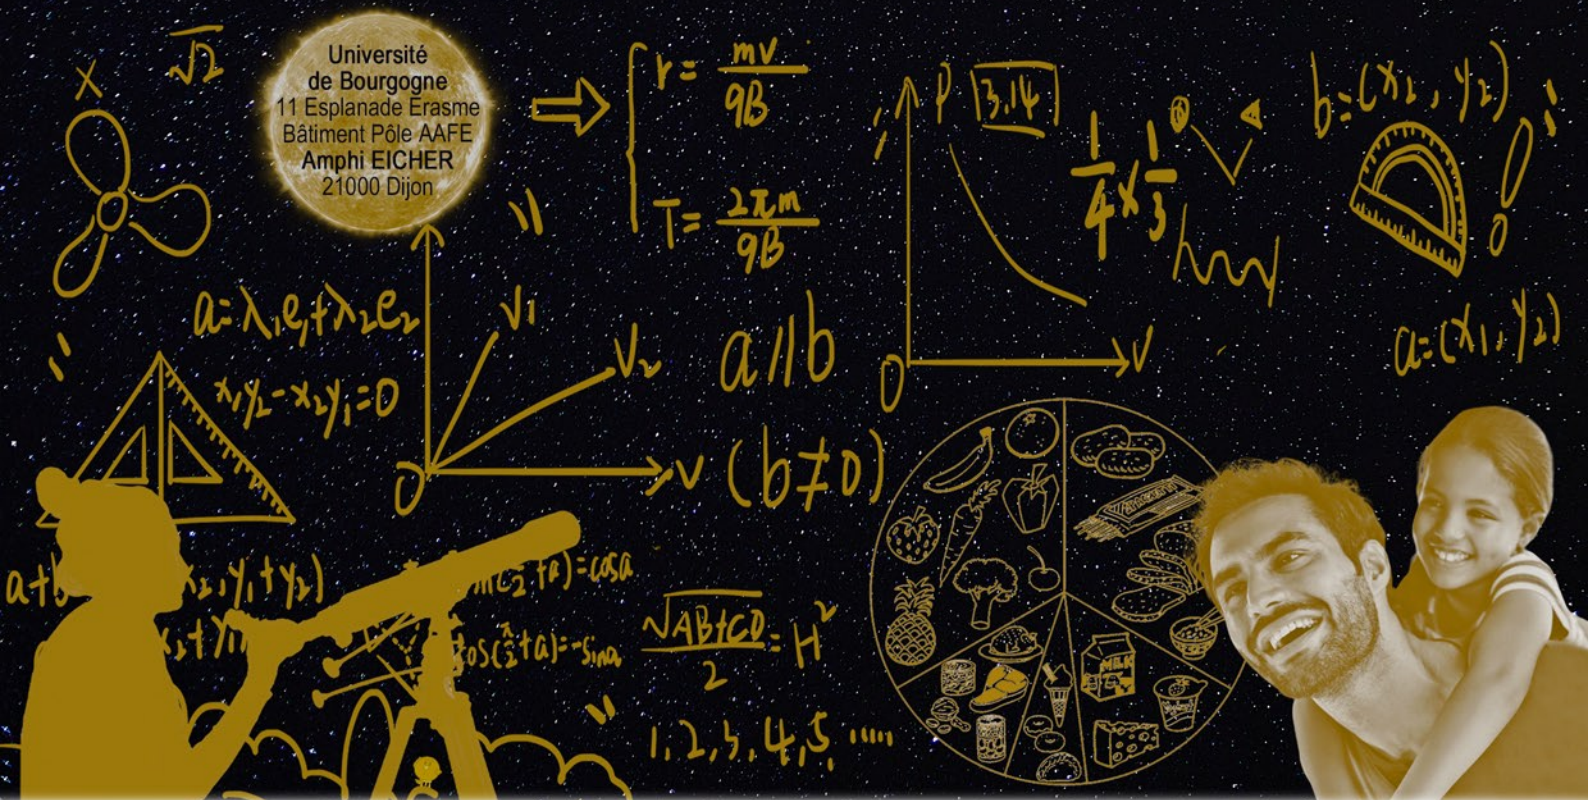 Université
de Bourgogne
11 Esplanade Erasme
Bâtiment Pôle AAFE
Amphi EICHER
21000 Dijon
X
√2
r = mv / qB
T = 2πm / qB
P
3.14
1/4 x 1/3
b=(x₂, y₂)
a=(x₁, y₂)
a=λ₁e₁+λ₂e₂
x₁y₂-x₂y₁=0
V₁
V₂
a//b
V
0
(b≠0)
V
0
√AB+CD / 2 = H²
1,2,3,4,5,.....
MILK